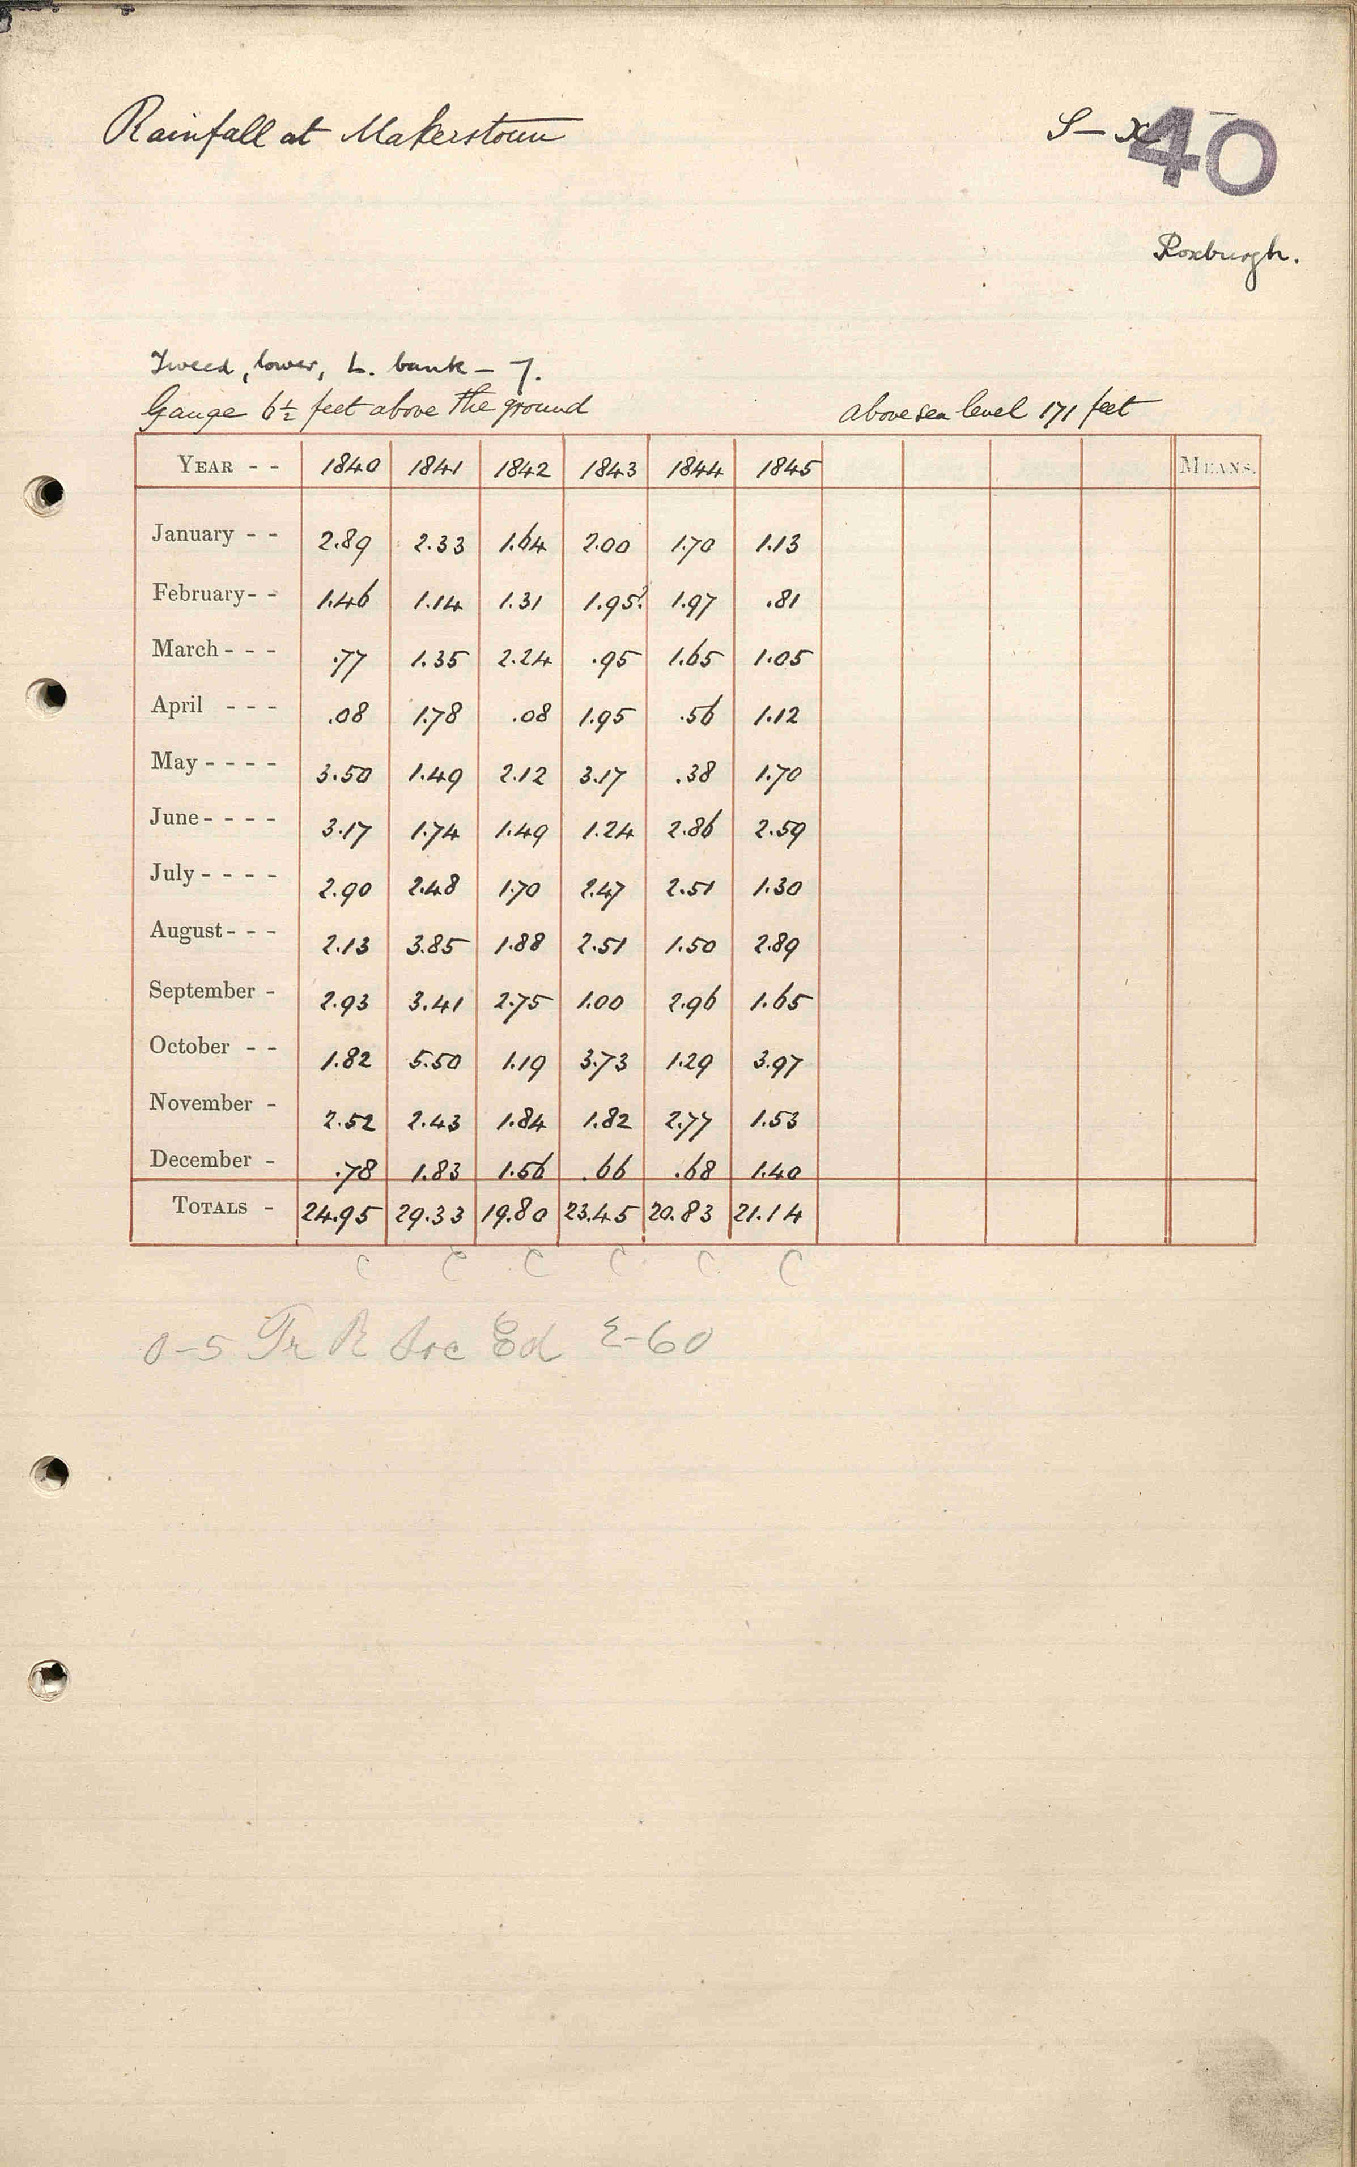 Rainfall at Makerstoun
S – x
40
Roxburgh.
Tweed, lower, L. bank – 7.
Gauge 6½ feet above the ground above sea level 171 feet
YEAR - - 1840 1841 1842 1843 1844 1845 MEANS.
January - - 2.89 2.33 1.64 2.00 1.70 1.13
February - - 1.46 1.14 1.31 1.95? 1.97 .81
March - - - .77 1.35 2.24 .95 1.65 1.05
April - - - .08 1.78 .08 1.95 .56 1.12
May - - - - 3.50 1.49 2.12 3.17 .38 1.70
June - - - - 3.17 1.74 1.49 1.24 2.86 2.59
July - - - - 2.90 2.48 1.70 2.47 2.51 1.30
August - - - 2.13 3.85 1.88 2.51 1.50 2.89
September - 2.93 3.41 2.75 1.00 2.96 1.65
October - - 1.82 5.50 1.19 3.73 1.29 3.97
November - 2.52 2.43 1.84 1.82 2.77 1.53
December - .78 1.83 1.56 .66 .68 1.40
TOTALS - 24.95 29.33 19.80 23.45 20.83 21.14
C C C C C C
0-5 Tr R Soc Ed 2-60